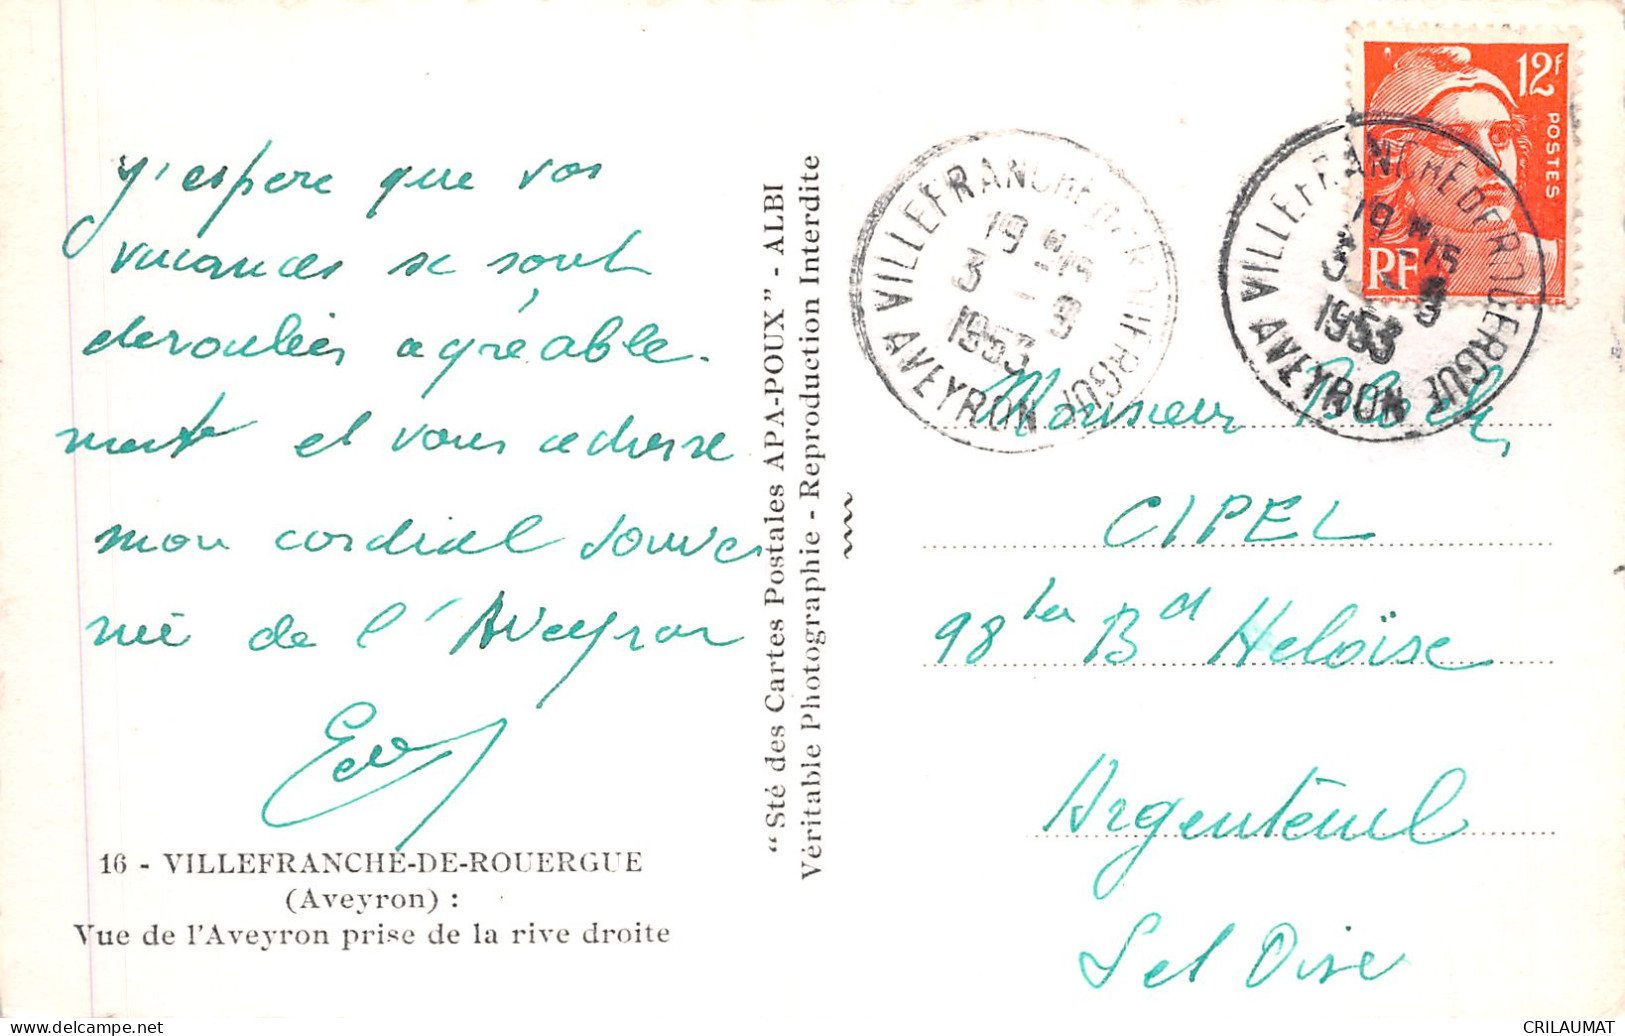 J'espère que vos
vacances se sont
deroulées agréable-
ment et vous adresse
mon cordial souve
nir de l'Aveyron
16 - VILLEFRANCHE-DE-ROUERGUE
(Aveyron) :
Vue de l'Aveyron prise de la rive droite
"Sté des Cartes Postales APA-POUX" - ALBI
Véritable Photographie - Reproduction Interdite
VILLEFRANCHE DE ROUERGUE
19 H 15
3 - 9
1953
AVEYRON
VILLEFRANCHE DE ROUERGUE
19 H 15
3 - 9
1953
AVEYRON
12F
POSTES
RF
Monsieur Bloch,
CIPEL
98 ter Bd Heloïse
Argenteuil
S et Oise
CRILAUMAT
delcampe.net